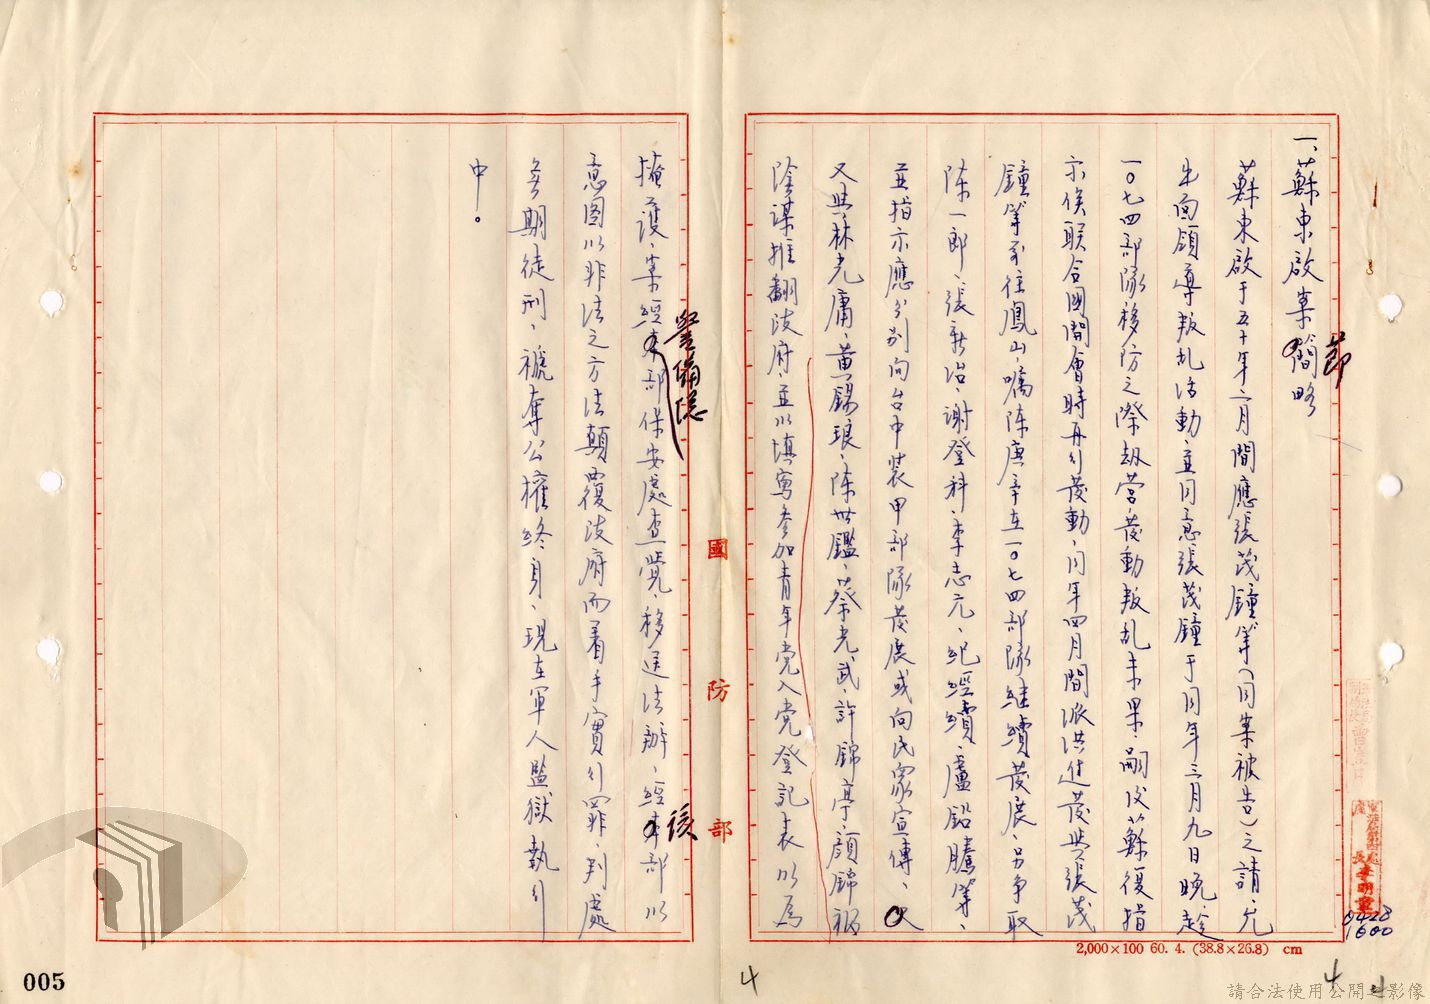 一、蘇東啟案簡略
節
蘇東啟于五十年二月間應張茂鐘等（同案被告）之請、允
出面領導叛乱活動、並同意張茂鐘于同年三月九日晚、趁
一〇七四部隊移防之際劫營、發動叛乱未果、嗣後蘇復指
示俟联合國開會時再行發動、同年四月間派洪進發與張茂
鐘等前往鳳山、囑陳庚辛在一〇七四部隊継續發展、另争取
陳一郎、張新治、謝登科、李志元、紀經續、盧鉛騰等、
並指示應分别向台中裝甲部隊發展或向民眾宣傳、又
又與林光庸、黄錫琅、陳世鑑、蔡光武、許錦亭、顏錦福
陰謀推翻政府、並以填寫參加青年党入党登記表以為
掩護、案經本部保安處查覺、移送法辦、經本部以
警備總
該
意图以非法之方法顛覆政府而著手實行罪、判處
無期徒刑、褫奪公權終身、現在軍人監獄執行
中。
國防部
2,000×100 60. 4. (38.8×26.8) cm
0428
1600
4
4
4
005
請合法使用公開之影像